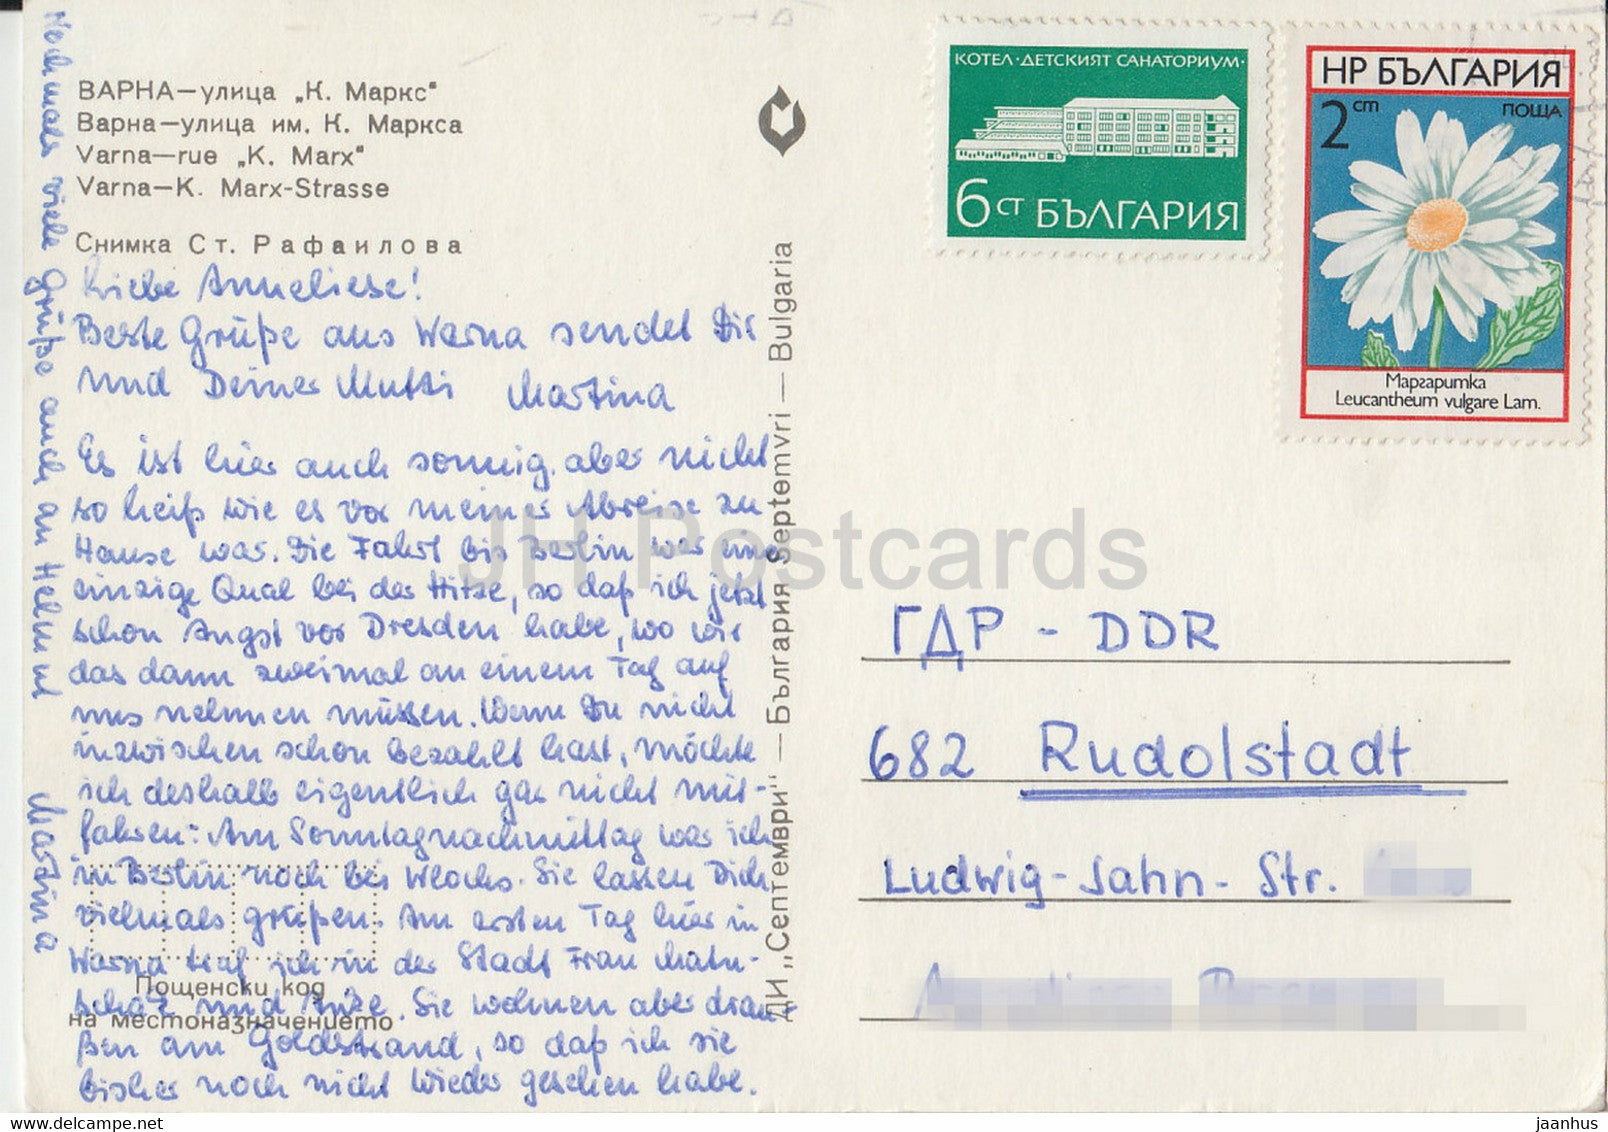 ВАРНА—улица „К. Маркс"
Варна—улица им. К. Маркса
Varna—rue „K. Marx"
Varna—K. Marx-Strasse
Снимка Ст. Рафаилова
Liebe Anneliese!
Beste Grüße aus Warna sendet Dir
und Deiner Mutti Martina
Es ist hier auch sonnig, aber nicht
so heiß wie es vor meiner Abreise zu
Hause war. Die Fahrt bis Berlin war eine
einzige Qual bei der Hitze, so daß ich jetzt
schon Angst vor Dresden habe, wo wir
das dann zweimal an einem Tag auf
uns nehmen müssen. Wenn Du nicht
inzwischen schon bezahlt hast, möchte
ich deshalb eigentlich gar nicht mit-
fahren. Am Sonntagnachmittag war ich
in Berlin noch bei Wlochs. Sie lassen Dich
vielmals grüßen. Am ersten Tag hier in
Warna traf ich in der Stadt Frau
und. Sie wohnen aber drau-
ßen am Goldstrand, so daß ich sie
bisher noch nicht wieder gesehen habe.
Nochmals viele Grüße auch an Helmut Martina
Пощенски код
на местоназначението
ДИ „Септември" — България Septemvri — Bulgaria
КОТЕЛ·ДЕТСКИЯТ САНАТОРИУМ·
6 СТ БЪЛГАРИЯ
НР БЪЛГАРИЯ
2 ст ПОЩА
Маргаритка
Leucantheum vulgare Lam.
ГДР - DDR
682 Rudolstadt
Ludwig-Jahn-Str.
JH Postcards
www.delcampe.net
jaanhus